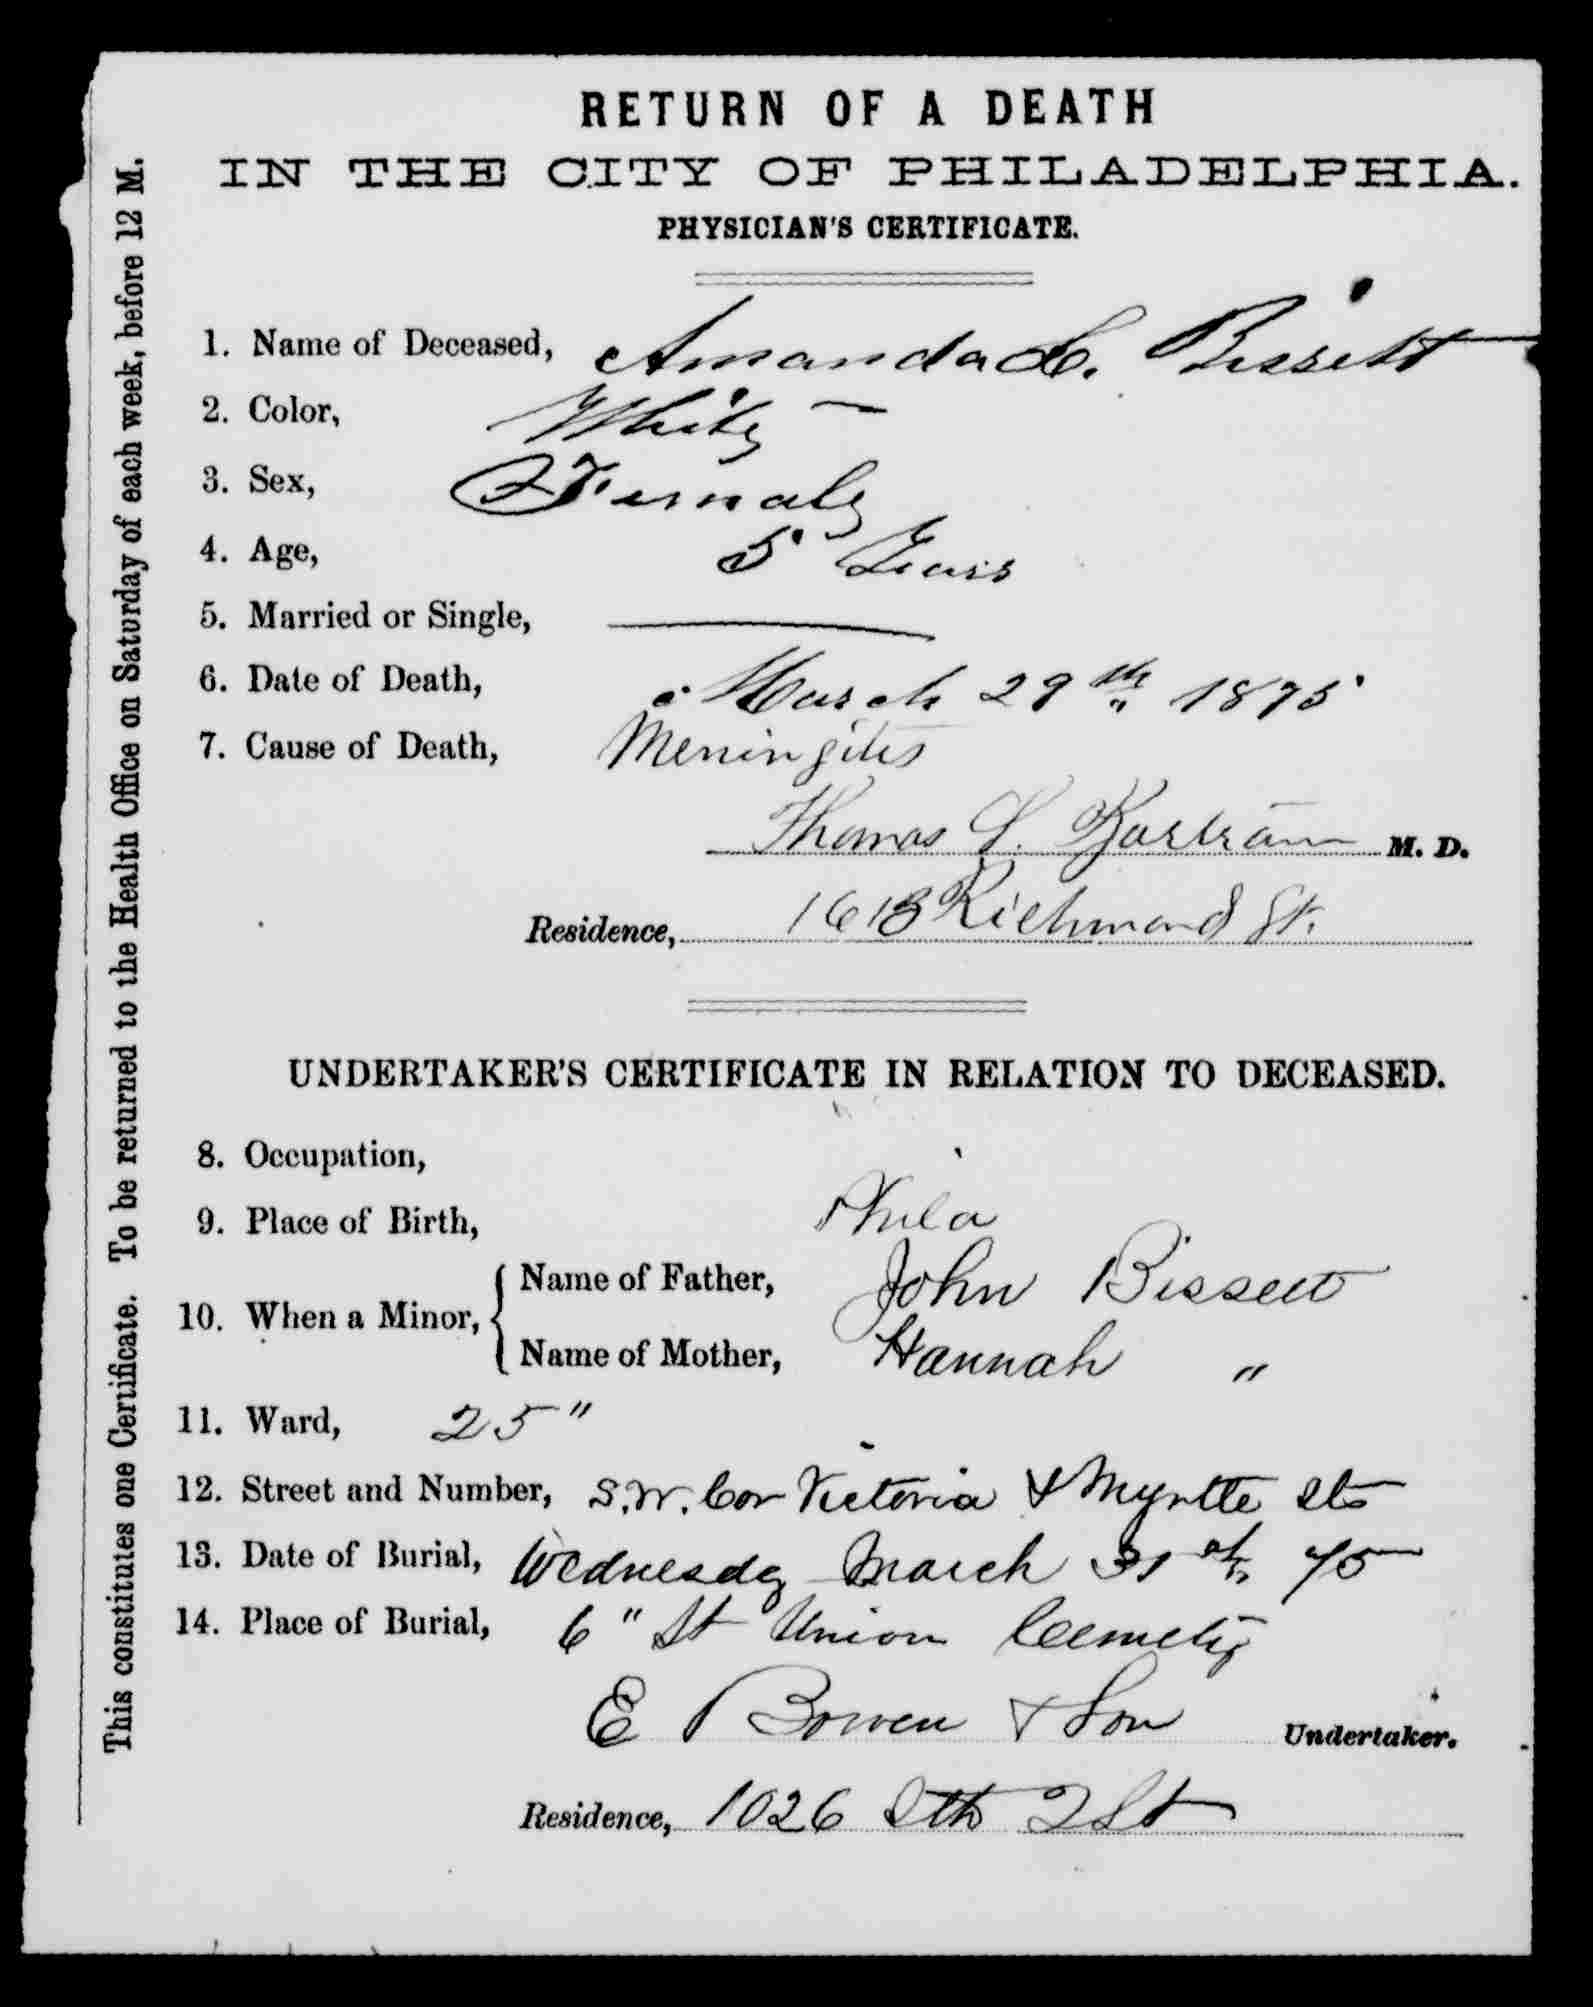 RETURN OF A DEATH
IN THE CITY OF PHILADELPHIA.
PHYSICIAN'S CERTIFICATE.
1. Name of Deceased, Amanda L. Bissett
2. Color, White
3. Sex, Female
4. Age, 5 Years
5. Married or Single,
6. Date of Death, March 29th 1875
7. Cause of Death, Meningitis
Thomas S. Bartram M. D.
Residence, 1613 Richmond St.
UNDERTAKER'S CERTIFICATE IN RELATION TO DECEASED.
8. Occupation,
9. Place of Birth, Phila
10. When a Minor,
Name of Father, John Bissett
Name of Mother, Hannah "
11. Ward, 25"
12. Street and Number, S.W. Cor Victoria & Myrtle Sts
13. Date of Burial, Wednesday March 31st 75
14. Place of Burial, 6" St Union Cemetry
E Bowen & Son Undertaker.
Residence, 1026 Sth 2 St
This constitutes one Certificate. To be returned to the Health Office on Saturday of each week, before 12 M.